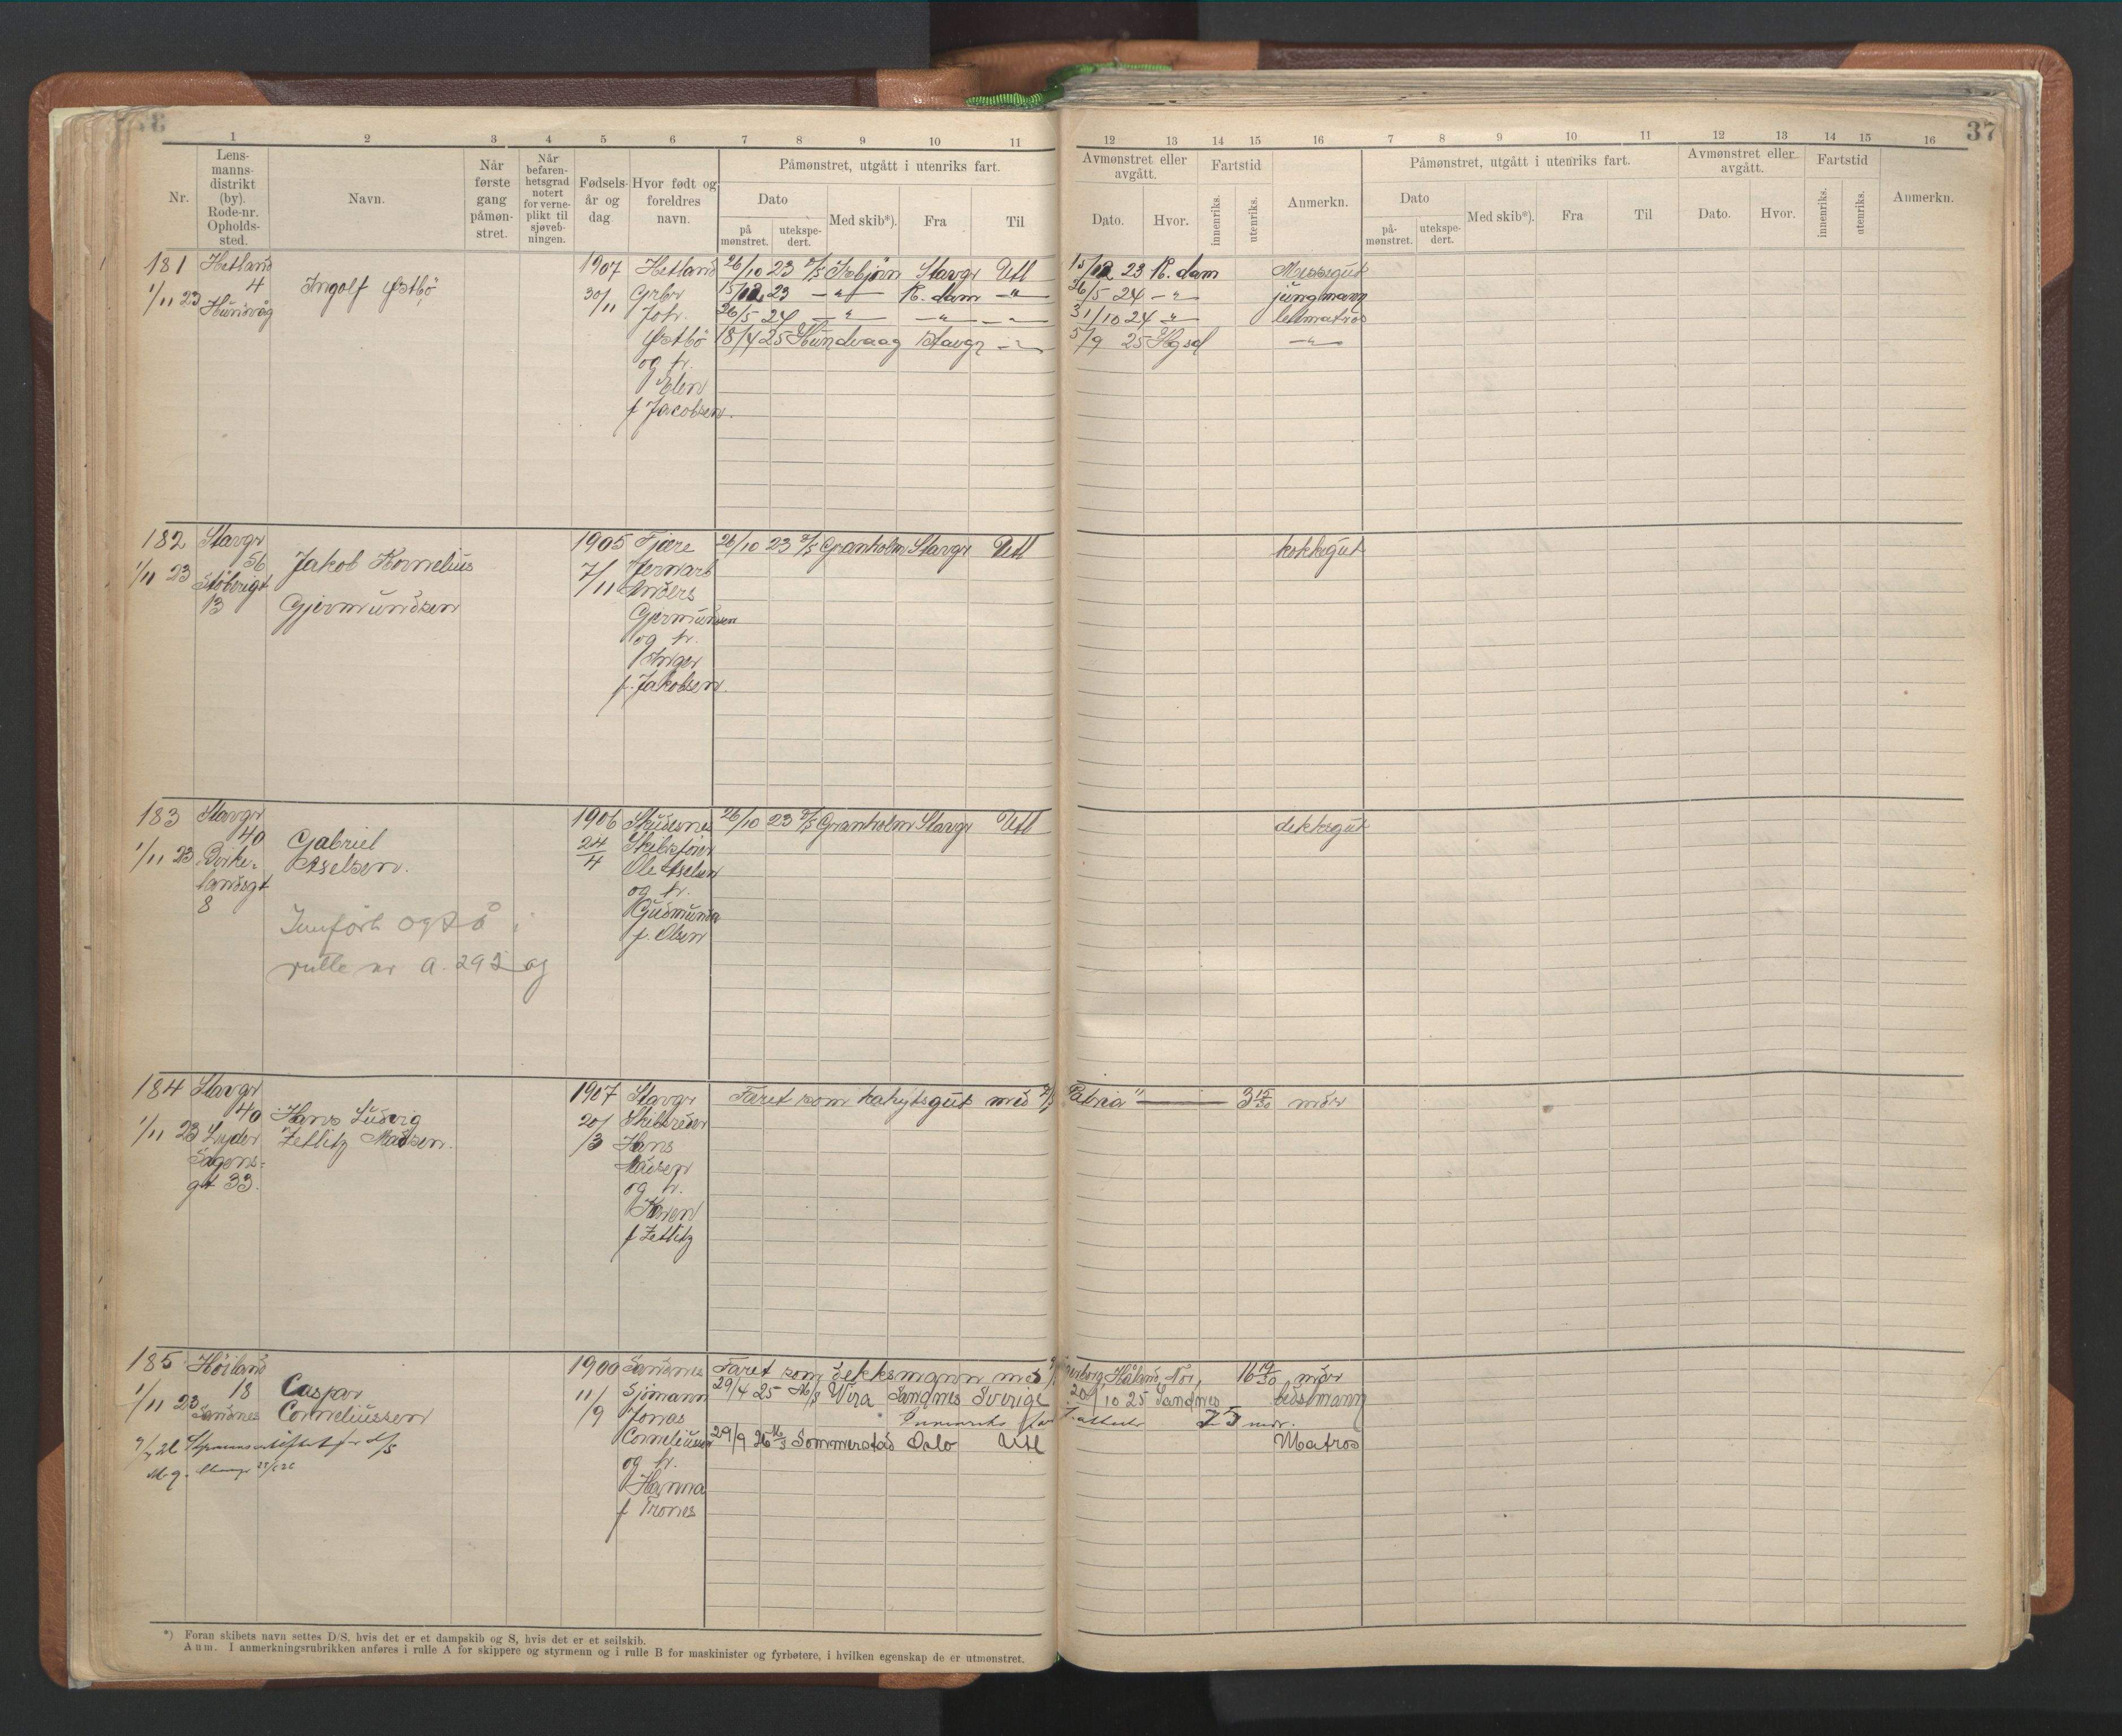 37
1 2 3 4 5 6 7 8 9 10 11
12 13 14 15 16 7 8 9 10 11 12 13 14 15 16
Nr.
Lens-
manns-
distrikt
(by).
Rode-nr.
Opholds-
sted.
Navn.
Når
første
gang
påmøn-
stret.
Når
befaren-
hetsgrad
notert
for verne-
plikt til
sjøveb-
ningen.
Fødsels-
år og
dag.
Hvor født og
foreldres
navn.
Påmønstret, utgått i utenriks fart.
Dato
på
mønstret.
utekspe-
dert.
Med skib*).
Fra
Til
Avmønstret eller
avgått.
Dato.
Hvor.
Fartstid
innenriks.
utenriks.
Anmerkn.
Påmønstret, utgått i utenriks fart.
Dato
på-
mønstret.
utekspe-
dert.
Med skib*).
Fra
Til
Avmønstret eller
avgått.
Dato.
Hvor.
Fartstid
innenriks.
utenriks.
Anmerkn.
181
1/11 23
Hetland
4
Hundvåg
Ingolf Østbö
1907
30/11
Hetland
Grbr
Joh.
Østbö
og h.
Elen
f Jacobsen.
26/10 23 D/S Isbjörn Stavgr Utl 15/12 23 R.dam Messegut
15/12 23 —"— R.dam —"— 26/5 24 —"— jungmann
26/5 24 —"— —"— —"— 31/10 24 —"— lettmatros
18/4 25 Hundvaag Stavgr —"— 5/9 25 Hgsd —"—
182
1/11 23
Stavgr
56
Støberigt
13
Jakob Kornelius
Gjermundsen
1905
7/11
Fjære
Jernarb
Anders
Gjermundsen
og h.
Inger
f. Jakobsen.
26/10 23 D/S Granholm Stavgr Utl kokksgut
183
1/11 23
Stavgr
40
Birke-
landsgt
8
Gabriel
Aselsen.
Innfört også i
rulle nr a. 292 og
1906
24/4
Skudesnes
Skibsfører
Ole Aselsen
og h.
Gudmunda
f. Olsen
26/10 23 D/S Granholm Stavgr Utl dekksgut
184
1/11 23
Stavgr
40
Lyder
Sagens-
gt 33.
Hans Ludvig
Zetlitz Madsen.
1907
20/3
Stavgr
Skibsreder
Hans
Madsen
og h.
Karen
f Zetlitz
Faret som kahytsgut med D/S Patria" — 3 15/30 mdr
185
1/11 23
Höiland
18
Sandnes
Caspar
Corneliussen
1900
11/9
Sandnes
Sjömann
Jonas
Corneliussen
og h.
Hanna
f Trones
Faret som dekksmann med Håland, 16 19/30 mdr
29/4 25 M/S Wira Sandnes Sverige 20/10 25 Sandnes bestmann
7 5 mdr.
29/9 26 M/S Sommerstad Oslo Utl Matros
*) Foran skibets navn settes D/S, hvis det er et dampskib og S, hvis det er et seilskib.
Anm. I anmerkningsrubrikken anføres i rulle A for skippere og styrmenn og i rulle B for maskinister og fyrbøtere, i hvilken egenskap de er utmønstret.